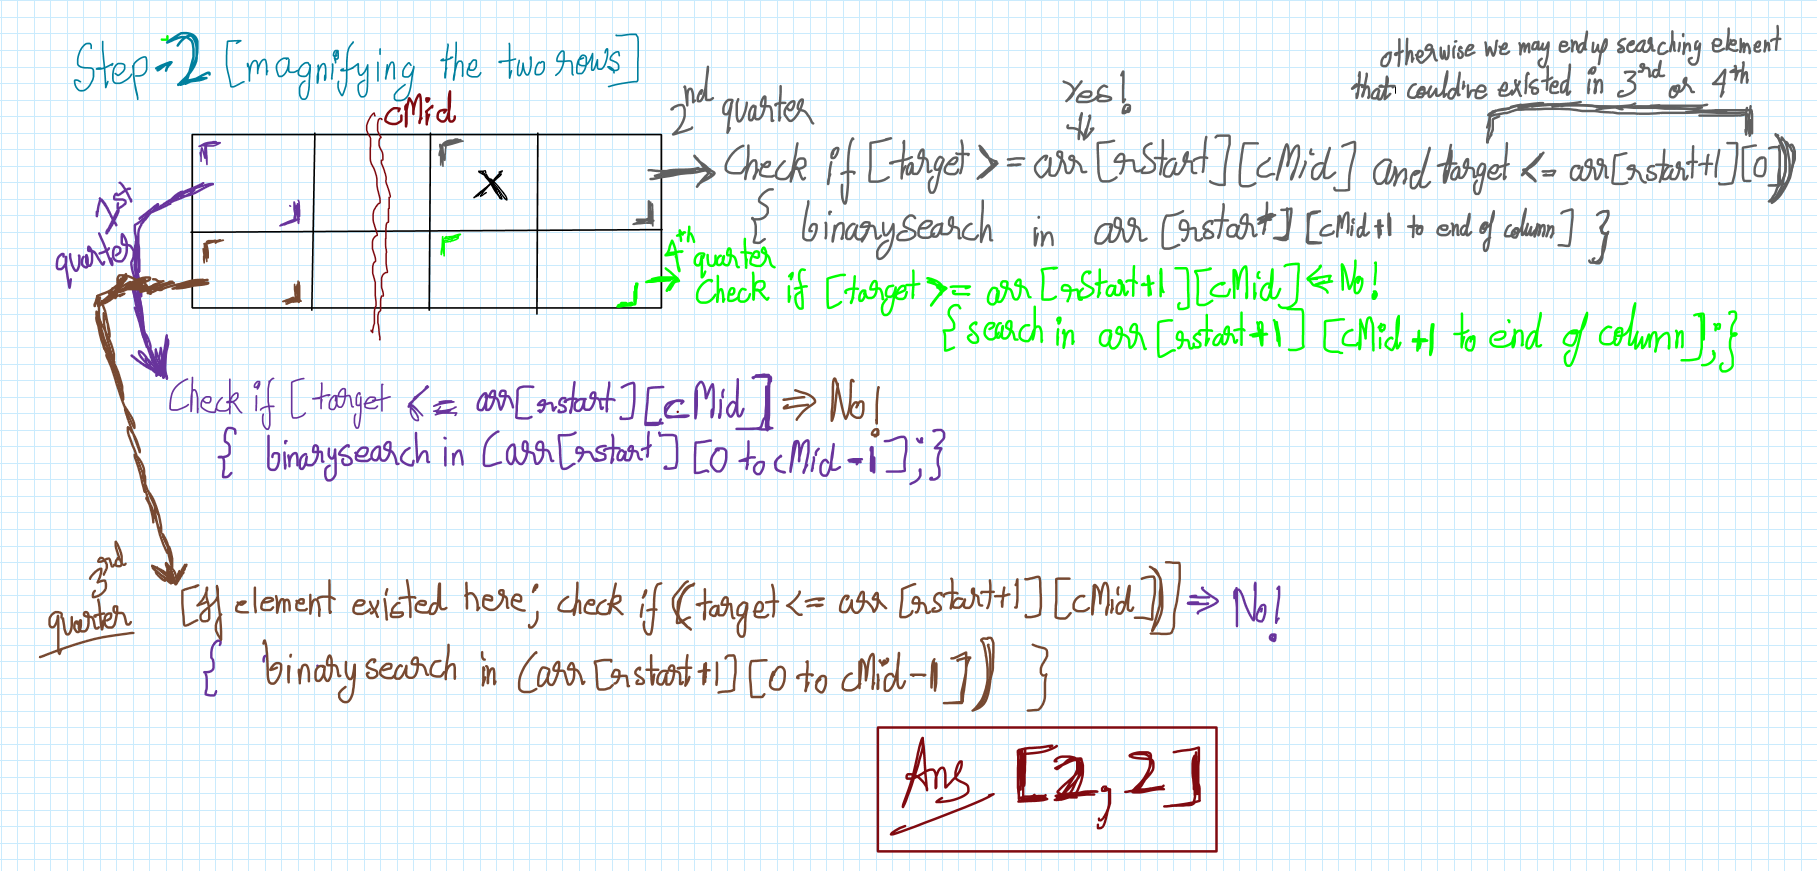 Step-2 [magnifying the two rows]
otherwise we may end up searching element
that could've existed in 3rd or 4th
cMid
2nd quarter
Yes!
Check if [target >= arr[rStart][cMid] and target <= arr[rstart+1][0])
{ binarysearch in arr[rstart][cMid+1 to end of column] }
1st
quarter
4th quarter
Check if [target >= arr[rStart+1][cMid] <= No!
{search in arr[rstart+1] [cMid+1 to end of column];}
Check if [target <= arr[rstart][cMid] => No!
{ binarysearch in (arr[rstart] [0 to cMid-1];}
3rd
quarter
[If element existed here; check if (target <= arr[rstart+1][cMid])] => No!
{ binarysearch in (arr[rstart+1][0 to cMid-1]) }
Ans [2,2]